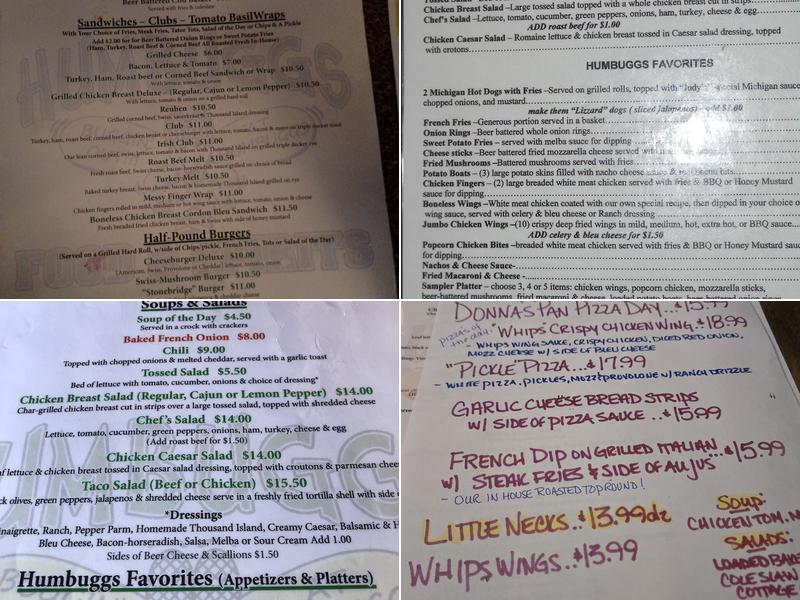 Beer Battered Cod
Served with fries & coleslaw
Sandwiches – Clubs – Tomato Basil Wraps
With Your Choice of Fries, Steak Fries, Tator Tots, Salad of the Day or Chips & A Pickle
Add $2.00 for for Beer Battered Onion Rings or Sweet Potato Fries
(Ham, Turkey, Roast Beef & Corned Beef All Roasted Fresh In-House)
Grilled Cheese $6.00
Bacon, Lettuce & Tomato $7.00
Turkey, Ham, Roast beef or Corned Beef Sandwich or Wrap $10.50
With lettuce, tomato & onion
Grilled Chicken Breast Deluxe – (Regular, Cajun or Lemon Pepper) $10.50
With lettuce, tomato & onion on a grilled hard roll
Reuben $10.50
Grilled corned beef, swiss, sauerkraut Thousand Island dressing
Club $11.00
Turkey, ham, roast beef, corned beef, chicken breast or cheeseburger with lettuce, tomato, bacon & mayo on triple decker toast
Irish Club $11.00
Our lean corned beef, swiss, lettuce, tomato & bacon with Thousand Island on grilled triple decker rye
Roast Beef Melt $10.50
Fresh roast beef, Swiss cheese, bacon-horseradish sauce grilled on choice of bread
Turkey Melt $10.50
Baked turkey breast, Swiss cheese, bacon & homemade Thousand Island grilled on rye
Messy Finger Wrap $11.00
Chicken fingers rolled in mild, medium or hot wing sauce with lettuce, tomato, onion & cheese
Boneless Chicken Breast Cordon Bleu Sandwich $11.50
Fresh breaded fried chicken breast, ham & Swiss with side of honey mustard
Half-Pound Burgers
(Served on a Grilled Hard Roll, w/side of Chips/pickle, French Fries, Tots or Salad of the Day)
Cheeseburger Deluxe $10.00
(American, Swiss, Provolone or Cheddar) lettuce, tomato, onion
Swiss-Mushroom Burger $10.50
"Stonebridge" Burger $11.00
Tossed Salad
Chicken Breast Salad -Large tossed salad topped with a whole chicken breast cut in strips
Chef's Salad -Lettuce, tomato, cucumber, green peppers, onions, ham, turkey, cheese & egg
ADD roast beef for $1.00
Chicken Caesar Salad – Romaine lettuce & chicken breast tossed in Caesar salad dressing, topped
with crotons
HUMBUGGS FAVORITES
2 Michigan Hot Dogs with Fries –Served on grilled rolls, topped with "Judy's" special Michigan sauce
chopped onions, and mustard
make them "Lizzard" dogs ( sliced jalapenos) add $2.00
French Fries –Generous portion served in a basket
Onion Rings –Beer battered whole onion rings
Sweet Potato Fries – served with melba sauce for dipping
Cheese sticks –Beer battered fried mozzarella cheese served with
Fried Mushrooms –Battered mushrooms served with fries
Potato Boats – (3) large potato skins filled with nacho cheese bits
Chicken Fingers – (2) large breaded white meat chicken served with fries & BBQ or Honey Mustard
sauce for dipping
Boneless Wings –White meat chicken coated with our own special recipe, then dipped in your choice o
wing sauce, served with celery & bleu cheese or Ranch dressing
Jumbo Chicken Wings –(10) crispy deep fried wings in mild, medium, hot, extra hot, or BBQ sauce
ADD celery & bleu cheese for $1.50
Popcorn Chicken Bites –breaded white meat chicken served with fries & BBQ or Honey Mustard sauc
for dipping
Nachos & Cheese Sauce-
Fried Macaroni & Cheese -
Sampler Platter – choose 3, 4 or 5 items: chicken wings, popcorn chicken, mozzarella sticks,
beer-battered mushrooms, fried macaroni & cheese, loaded potato boats, beer battered onion rings
Soups & Salads
Soup of the Day $4.50
Served in a crock with crackers
Baked French Onion $8.00
Chili $9.00
Topped with chopped onions & melted cheddar, served with a garlic toast
Tossed Salad $5.50
Bed of lettuce with tomato, cucumber, onions & choice of dressing*
Chicken Breast Salad (Regular, Cajun or Lemon Pepper) $14.00
Char-grilled chicken breast cut in strips over a large tossed salad, topped with shredded cheese
Chef's Salad $14.00
Lettuce, tomato, cucumber, green peppers, onions, ham, turkey, cheese & egg
(Add roast beef for $1.50)
Chicken Caesar Salad $14.00
f lettuce & chicken breast tossed in Caesar salad dressing, topped with croutons & parmesan chee
Taco Salad (Beef or Chicken) $15.50
ck olives, green peppers, jalapenos & shredded cheese serve in a freshly fried tortilla shell with side
*Dressings
inaigrette, Ranch, Pepper Parm, Homemade Thousand Island, Creamy Caesar, Balsamic & H
Bleu Cheese, Bacon-horseradish, Salsa, Melba or Sour Cream Add 1.00
Sides of Beer Cheese & Scallions $1.50
Humbuggs Favorites (Appetizers & Platters)
DONNASTAN PIZZA DAY...$15.99
pizzas of the day:
"WHIPS" CRISPY CHICKEN WING..$18.99
- WHIPS WING SAUCE, CRISPY CHICKEN, DICED RED ONION,
MOZZ CHEESE W/ SIDE OF BLEU CHEESE
"PICKLE" PIZZA...$17.99
- WHITE PIZZA, PICKLES, MOZZ + PROVOLONE W/ RANCH DRIZZLE
GARLIC CHEESE BREAD STRIPS
W/ SIDE OF PIZZA SAUCE ..$15.99
FRENCH DIP ON GRILLED ITALIAN...$15.99
W/ STEAK FRIES & SIDE OF AU JUS
- OUR IN HOUSE ROASTED TOP ROUND!
LITTLE NECKS..$13.99dz
WHIPS WINGS..$13.99
SOUP:
CHICKEN TOM.
SALADS:
LOADED BAKE
COLE SLAW
COTTAGE